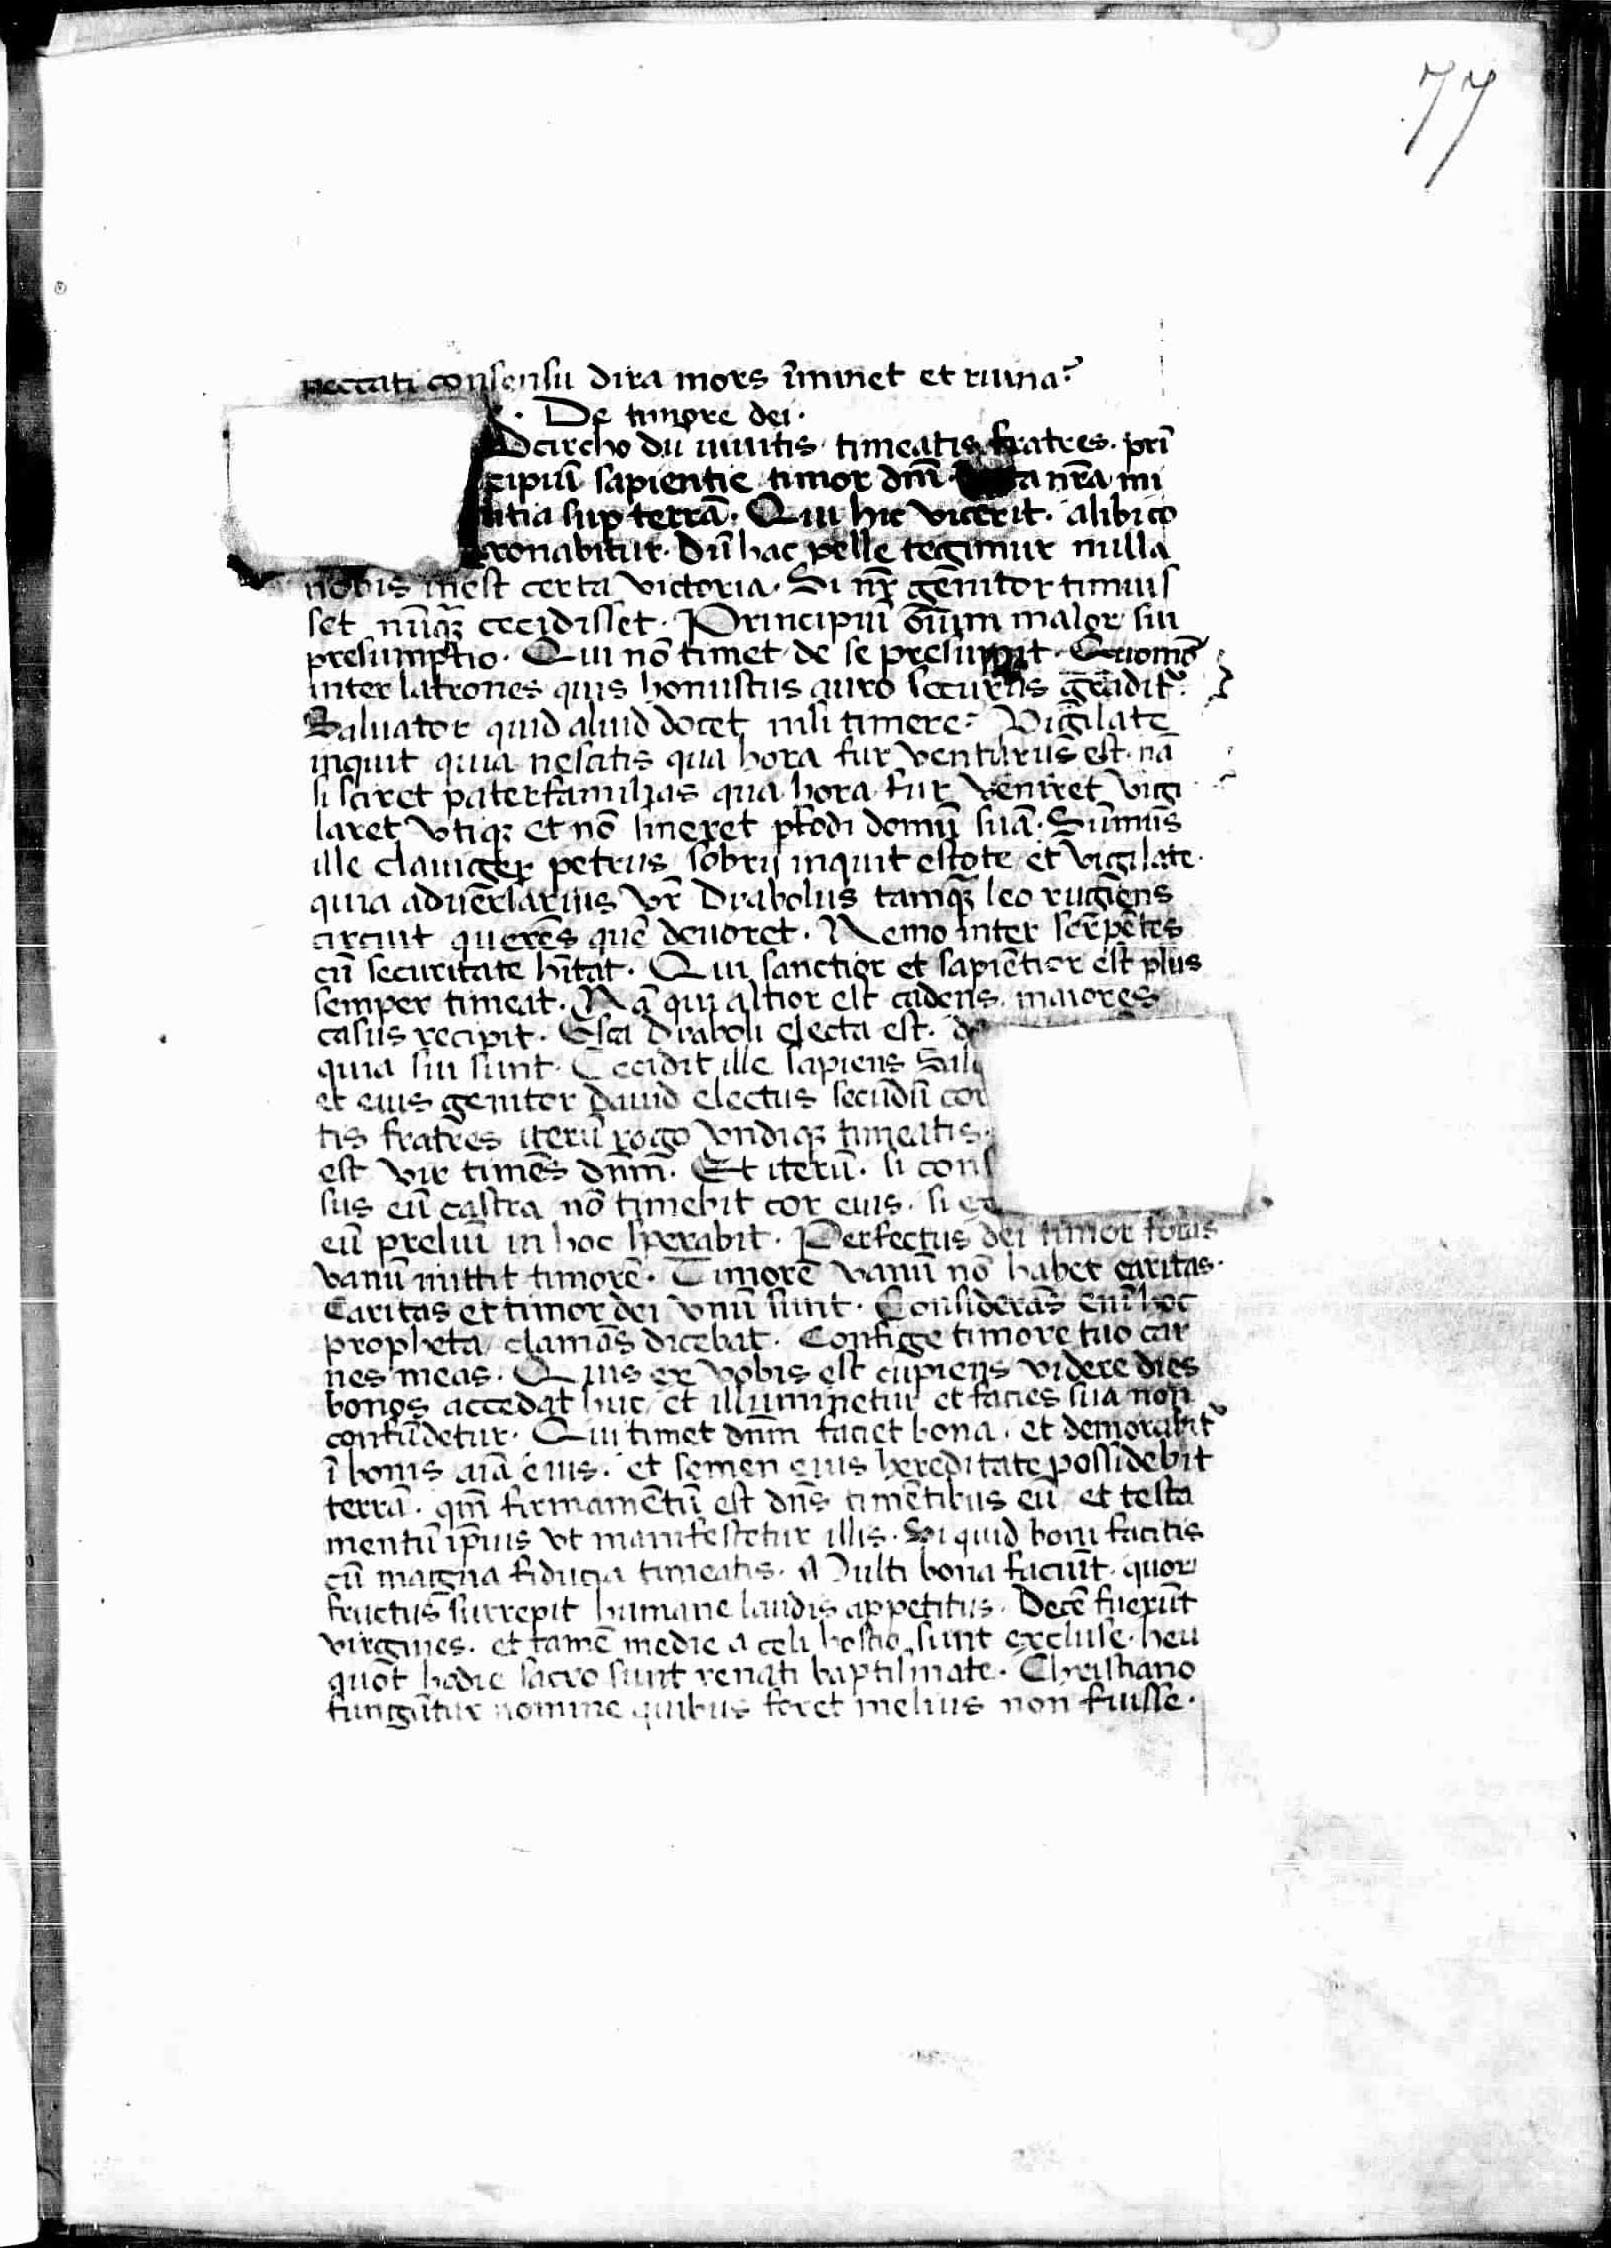 77
peccati consensu dira mors īminet et ruina?
De timore dei.
Dcircho dū uiuitis timeatis fratres. pri
cipiū sapientie timor dnī. nr̄a mi
litia sup terrā. Qui hic vicerit. alibi co
ronabitur. Dū hac pelle tegimur nulla
nobis inest certa victoria. Si nr̄ genitor timuis
set nūqȝ cecidisset. Principiū oīum malor sui
presumptio. Qui nō timet de se presumit. Quomō
inter latrones quis honustus auro securus gradit̄?
Saluator quid aliud docet nisi timere? Vigilate
inquit quia nescitis qua hora fur venturus est. nā
si sciret paterfamilias qua hora fur veniret vigi
laret vtiqȝ et nō sineret pfodi domū suā. Sūmus
ille clauiger petrus sobrij inquit estote et vigilate.
quia aduersarius vr̄ Diabolus tamqȝ leo rugiens
circuit querēs quē deuoret. Nemo inter serpētes
cū securitate hītat. Qui sanctior et sapientior est plus
semper timeat. Nā qui altior est cadens maiores
casus recipit. Esca Diaboli electa est.
quia sui sunt. Cecidit ille sapiens Sal
et eius genitor Dauid electus secūdū cor
tis fratres iterū rogo vndiqȝ timeatis.
est vir timēs dnm̄. Et iterū. si cons
sus eū castra nō timebit cor eius. si ex
eū preliū in hoc sperabit. Perfectus dei timor foras
vanū mittit timorē. Timorē vanū nō habet caritas.
Caritas et timor dei vnū sunt. Considerās eni hoc
propheta clamās dicebat. Confige timore tuo car
nes meas. Quis ex vobis est cupiens videre dies
bonos accedat huc et illuminetur et facies sua non
confūdetur. Qui timet dnm̄ faciet bona. et demorabit̄
ī bonis aīa eius. et semen eius hereditate possidebit
terrā. qm̄ firmamētū est dns̄ timētibus eū et testa
mentū ip̄ius vt manifestetur illis. Si quid boni facitis
cū magna fiducia timeatis. Multi bona faciūt. quor
fructus surrepit humane laudis appetitus. Decē fuerūt
virgines. et tamē medie a celi hostio sunt excluse. heu
quōt hodie sacro sunt renati baptismate. Christiano
fungūtur nomine quibus foret melius non fuisse.